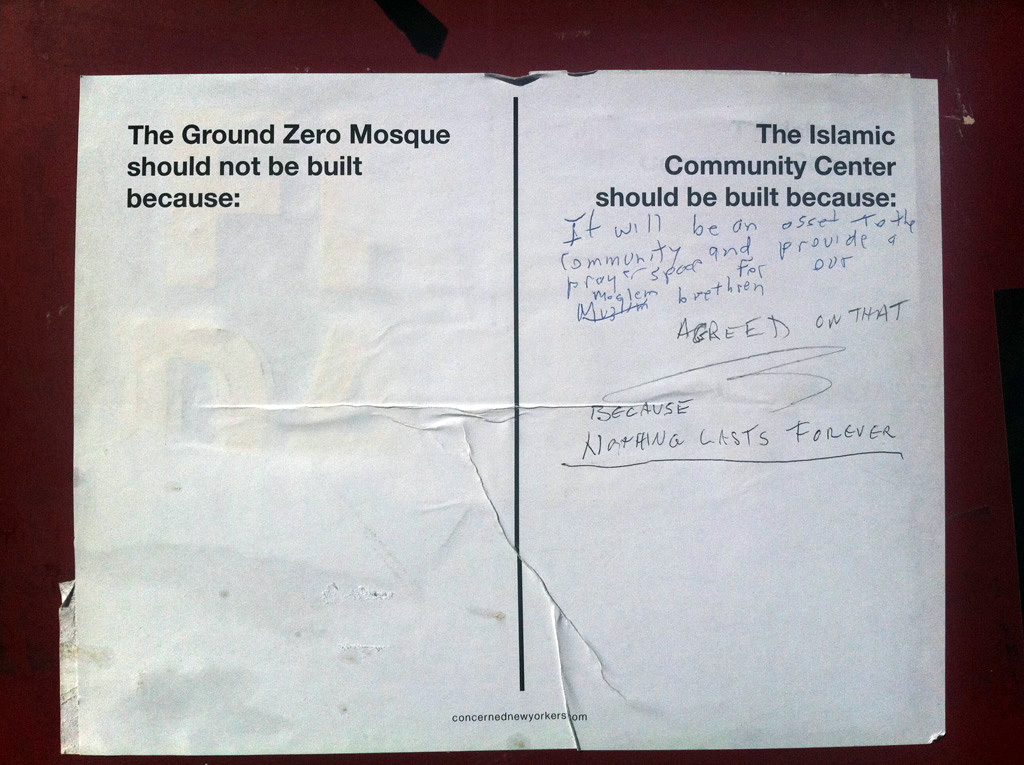 The Ground Zero Mosque
should not be built
because:
The Islamic
Community Center
should be built because:
It will be an asset to the
community and provide a
prayer space for our
Moslem brethren
Muzlim
AGREED ON THAT
BECAUSE
NOTHING LASTS FOREVER
concernednewyorkers om